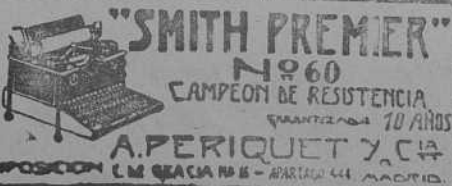 "SMITH PREMIER"
Nº 60
CAMPEON DE RESISTENCIA
GARANTIZADA 10 AÑOS
A. PERIQUET Y CIA
EXPOSICION C. DE GRACIA - APARTADO 444 MADRID.